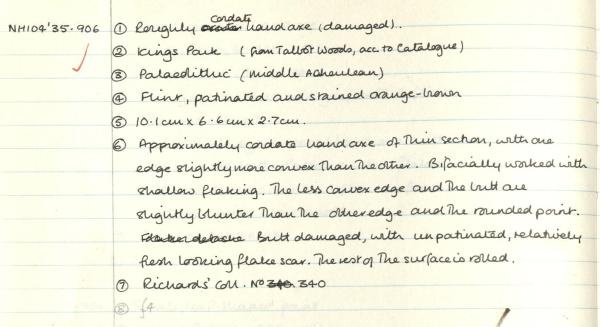 NH104'35.906 ① Roughly cordate handaxe (damaged).
② Kings Park (from Talbot Woods, acc. to Catalogue)
③ Palaeolithic (Middle Acheulean)
④ Flint, patinated and stained orange-brown
⑤ 10.1cm x 6.6cm x 2.7cm.
⑥ Approximately cordate handaxe of thin section, with one
edge slightly more convex than the other. Bifacially worked with
shallow flaking. The less convex edge and the butt are
slightly blunter than the other edge and the rounded point.
Butt damaged, with unpatinated, relatively
fresh looking flake scar. The rest of the surface is rolled.
⑦ Richards' Coll. No 340. 340
⑧ £4